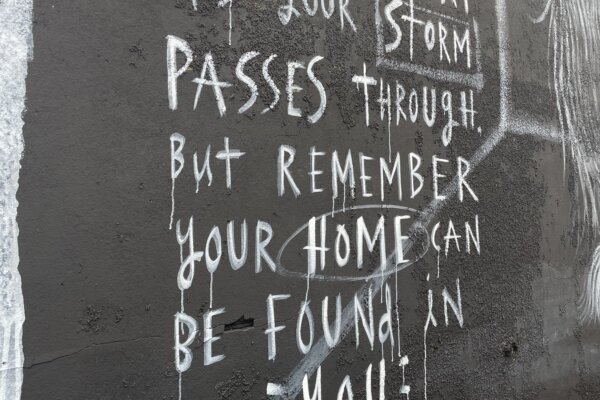 YOUR
STORM
PASSES THROUGH.
BUT REMEMBER
YOUR HOME CAN
BE FOUND IN
-YOU-